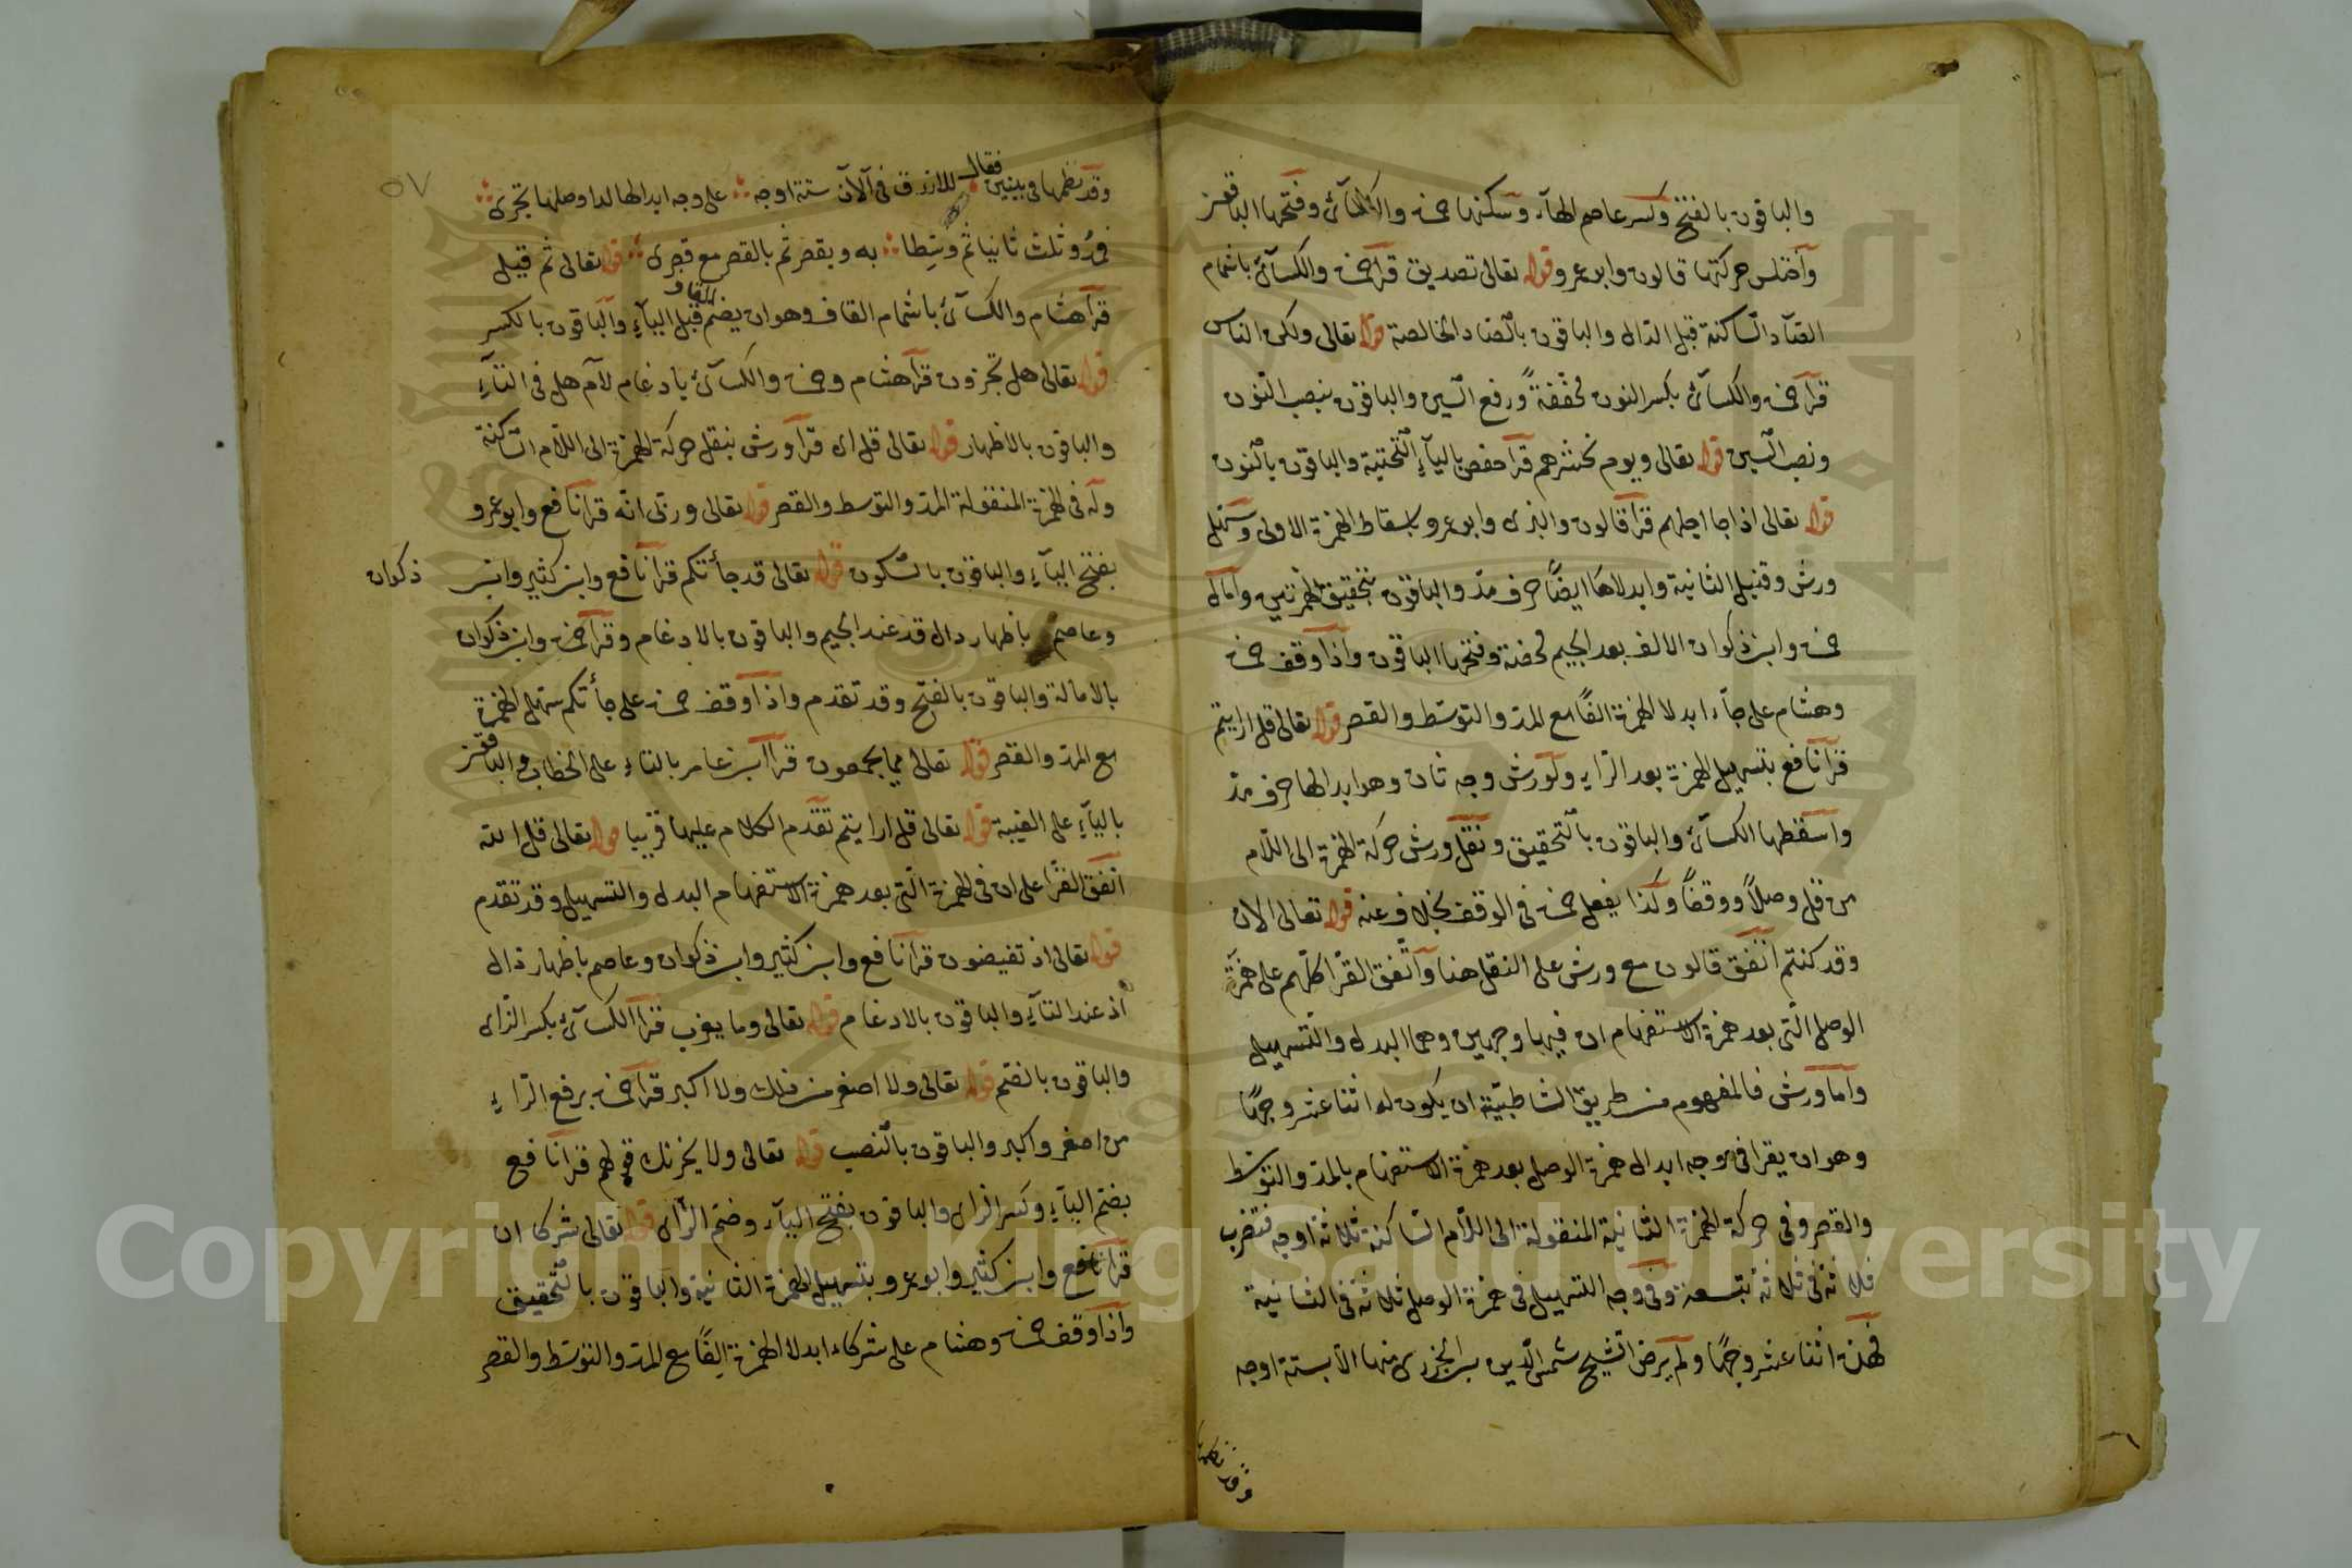 والباقون بالفتح وكسر عاصم الهاء وسكنها حمزة والكسائى وفتحها الباقون
وأختلس حركتها قالون وابو عمرو قوله تعالى تصديق قرأ حمزة والكسائى باشمام
الصاد الساكنة قبل الدال والباقون بالصاد الخالصة قوله تعالى ولكن الناس
قرأ حمزة والكسائى بكسر النون مخففةً ورفع السين والباقون بنصب النون
ونصب السين قوله تعالى ويوم نحشرهم قرأ حفص بالياء التحتية والباقون بالنون
قوله تعالى اذا جا اجلهم قرأ قالون والبزى وابو عمرو باسقاط الهمزة الاولى وسهل
ورش وقنبل الثانية وابدلاها ايضًا حرف مد والباقون بتحقيق الهمزتين وأمال
حمزة وابن ذكوان الالف بعد الجيم محضة وفتحها الباقون واذا وقف حمزة
وهشام على جاء ابدلا الهمزة الفًا مع المد والتوسط والقصر قوله تعالى قل ارايتم
قرأ نافع بتسهيل الهمزة بعد الراء ولورش وجه ثان وهو ابدالها حرف مد
واسقطها الكسائى والباقون بالتحقيق ونقل ورش حركة الهمزة الى اللام
من قل وصلاً ووقفاً وكذا يفعل حمزة فى الوقف بخلاف عنه قوله تعالى الان
وقد كنتم اتفق قالون مع ورش على النقل هنا واتفق القرا كلهم على همزة
الوصل التى بعد همزة الاستفهام ان فيها وجهين وهما البدل والتسهيل
وأما ورش فالمفهوم من طريق الشاطبية ان يكون له اثنا عشر وجهًا
وهو ان يقرا فى وجه ابدال همزة الوصل بعد همزة الاستفهام بالمد والتوسط
والقصر وفى حركة الهمزة الثانية المنقولة الى اللام الساكنة ثلاثة اوجه فتضرب
ثلاثة فى ثلاثة بتسعة وفى وجه التسهيل فى همزة الوصل ثلاثة فى الثانية
فهذه اثنا عشر وجهًا ولم يرض الشيخ شمس الدين بن الجزرى منها الا بستة اوجه
وقد نظمها
وقد نظمها فى بيتين فقال للازرق فى آلآن ستة اوجه على وجه ابدالها لدا وصلها تجرى
فمد وثلث ثانيا ثم وسطا به وبقصر ثم بالقصر مع قصرى قوله تعالى ثم قيل
قرأ هشام والكسائى باشمام القاف وهو ان يضم القاف قبل الياء والباقون بالكسر
قوله تعالى هل تجزون قرأ هشام وحمزة والكسائى بادغام لام هل فى التاء
والباقون بالاظهار قوله تعالى قل اى قرأ ورش بنقل حركة الهمزة الى اللام الساكنة
وله فى الهمزة المنقولة المد والتوسط والقصر قوله تعالى وربى انه قرأ نافع وابو عمرو
بفتح الياء والباقون بالسكون قوله تعالى قد جأتكم قرأ نافع وابن كثير وابن ذكوان
وعاصم باظهار دال قد عند الجيم والباقون بالادغام وقرأ حمزة وابن ذكوان
بالامالة والباقون بالفتح وقد تقدم واذا وقف حمزة على جأتكم سهل الهمزة
مع المد والقصر قوله تعالى مما يجمعون قرأ ابن عامر بالتاء على الخطاب والباقون
بالياء على الغيبة قوله تعالى قل ارايتم تقدم الكلام عليها قريبا قوله تعالى قل الله
اتفق القرا على ان فى الهمزة التى بعد همزة الاستفهام البدل والتسهيل وقد تقدم
قوله تعالى اذ تفيضون قرأ نافع وابن كثير وابن ذكوان وعاصم باظهار ذال
اذ عند التاء والباقون بالادغام قوله تعالى وما يعزب قرأ الكسائى بكسر الزاى
والباقون بالضم قوله تعالى ولا اصغر من ذلك ولا اكبر قرأ حمزة برفع الراء
من اصغر واكبر والباقون بالنصب قوله تعالى ولا يحزنك قولهم قرأ نافع
بضم الياء وكسر الزاى والباقون بفتح الياء وضم الزاى قوله تعالى شركا ان
قرأ نافع وابن كثير وابو عمرو بتسهيل الهمزة الثانية والباقون بالتحقيق
واذا وقف حمزة وهشام على شركاء ابدلا الهمزة الفًا مع المد والتوسط والقصر
٥٧
Copyright © King Saud University